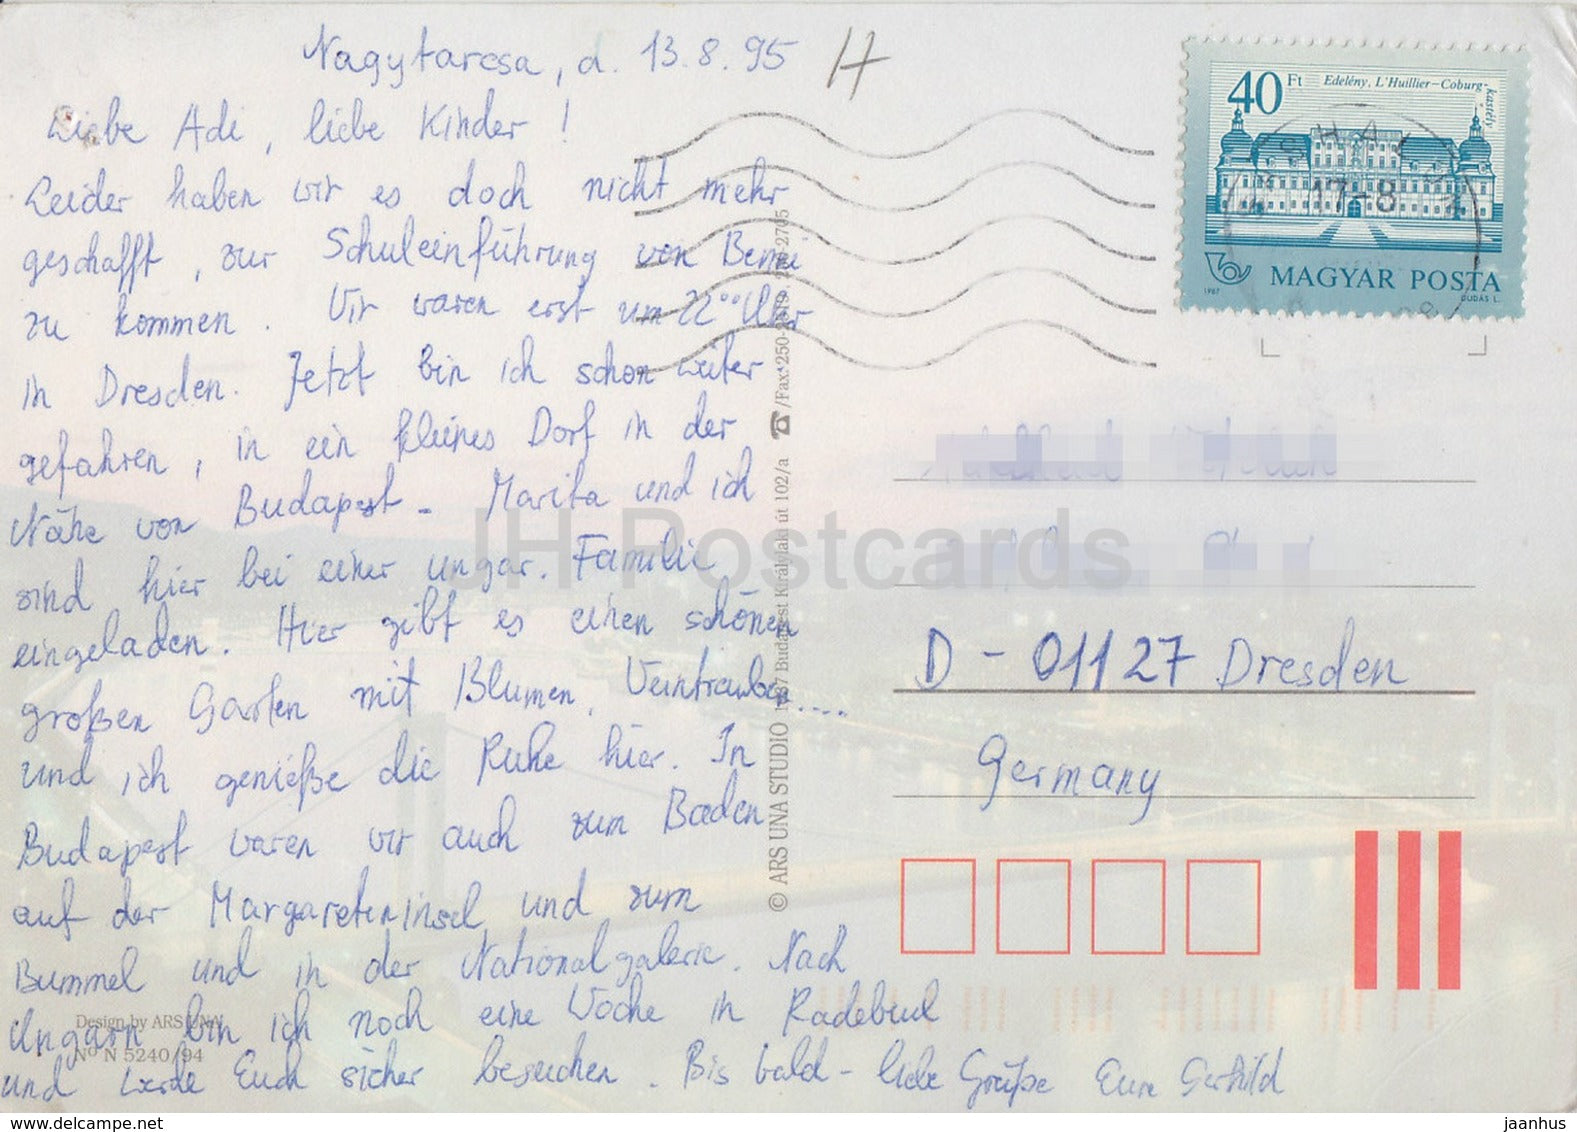 Nagytarcsa, d. 13.8.95
17
Liebe Adi, liebe Kinder!
Leider haben wir es doch nicht mehr
geschafft, zur Schuleinführung von
zu kommen. Wir waren erst um 22°° Uhr
in Dresden. Jetzt bin ich schon weiter
gefahren, in ein kleines Dorf in der
Nähe von Budapest. Marita und ich
sind hier bei einer ungar. Familie
eingeladen. Hier gibt es einen schönen
großen Garten mit Blumen, Weintrauben....
und ich genieße die Ruhe hier. In
Budapest waren wir auch zum Baden
auf der Margareteninsel und zum
Bummel und in der Nationalgalerie. Nach
Ungarn bin ich noch eine Woche in Radebeul
und werde Euch sicher besuchen. Bis bald - liebe Grüße Eure Gerhild
Design by ARS UNA
No N 5240/94
© ARS UNA STUDIO 1037 Budapest Királylaki út 102/a ☎/Fax: 250-2619, 250-2705
40 Ft Edelény, L'Huillier-Coburg kastély
17-8
MAGYAR POSTA
1987
DUDÁS L.
D - 01127 Dresden
Germany
JH Postcards
www.delcampe.net
jaanhus